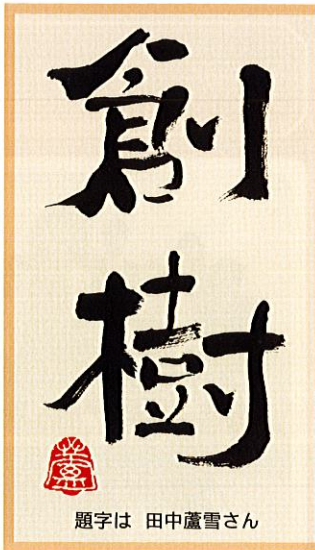 創樹
題字は 田中蘆雪さん